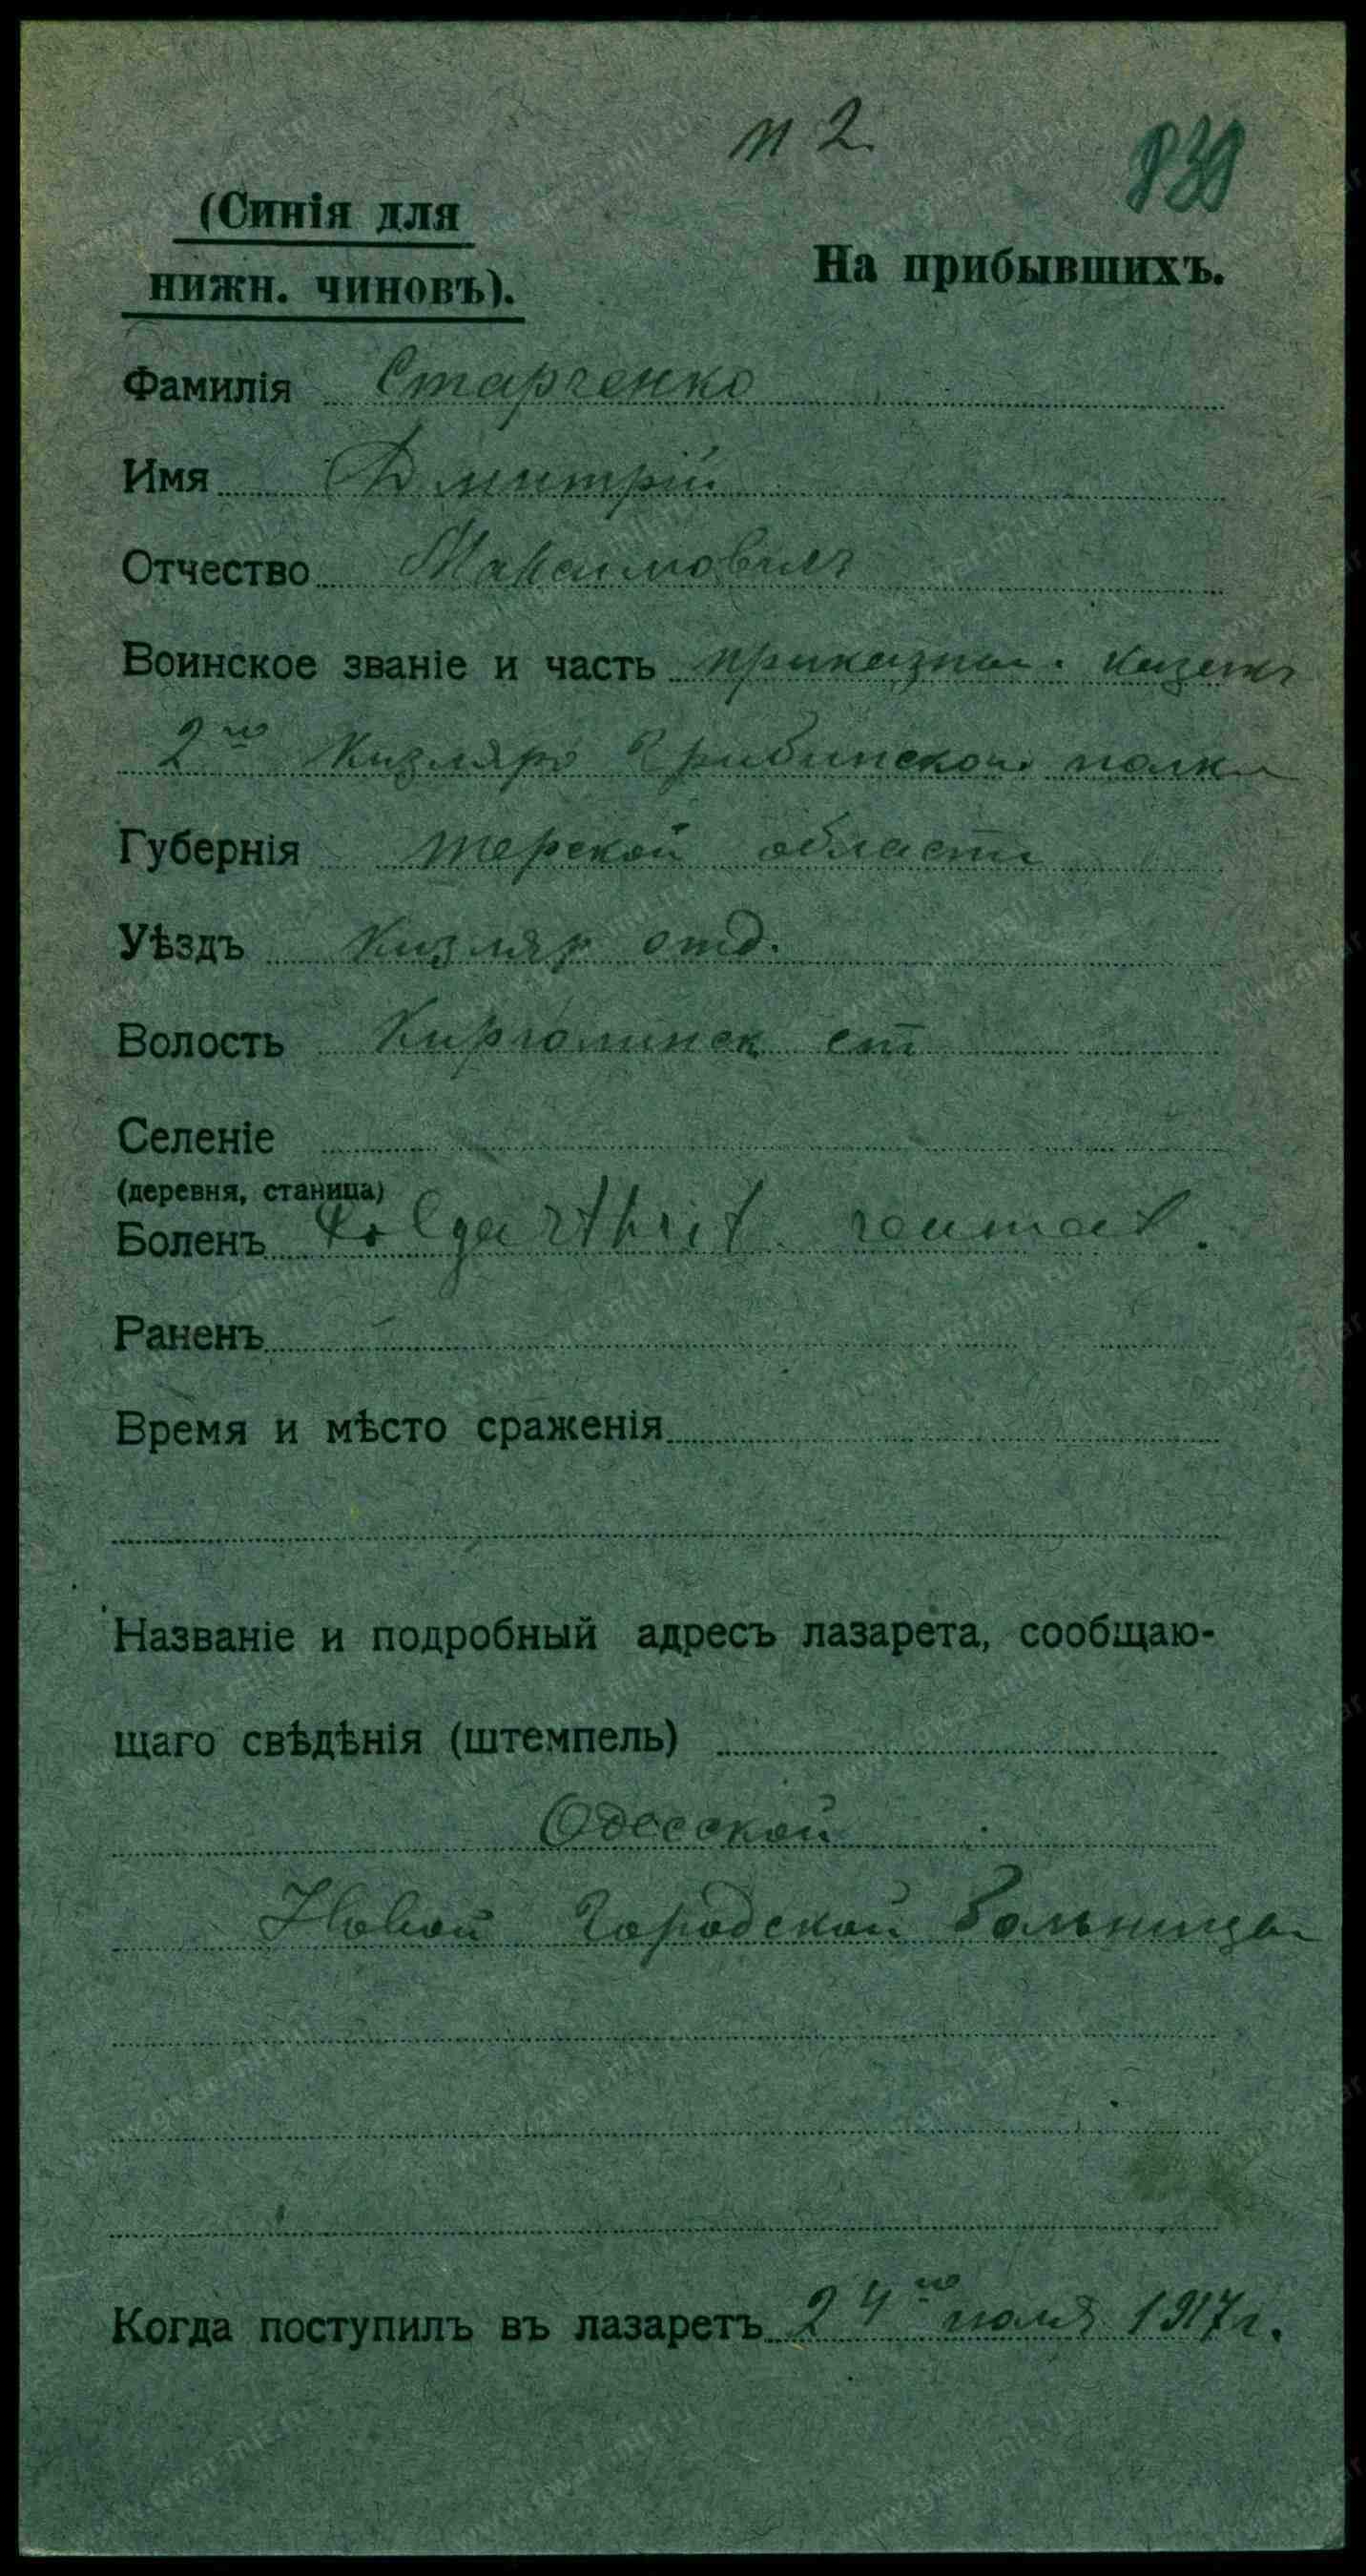 п 2.
839
(Синія для
нижн. чиновъ).
На прибывшихъ.
Фамилія Старченко
Имя Дмитрій
Отчество Максимовичъ
Воинское званіе и часть приказный казакъ
2го Кизляро Гребинского полка
Губернія терской области
Уѣздъ Кизляр отд.
Волость Каргалинск ст
Селеніе
(деревня, станица)
Боленъ Polyarthrit reumat.
Раненъ
Время и мѣсто сраженія
Названіе и подробный адресъ лазарета, сообщаю-
щаго свѣдѣнія (штемпель)
Одесской
Новой Городской Больницы
Когда поступилъ въ лазаретъ 24го 1917г.